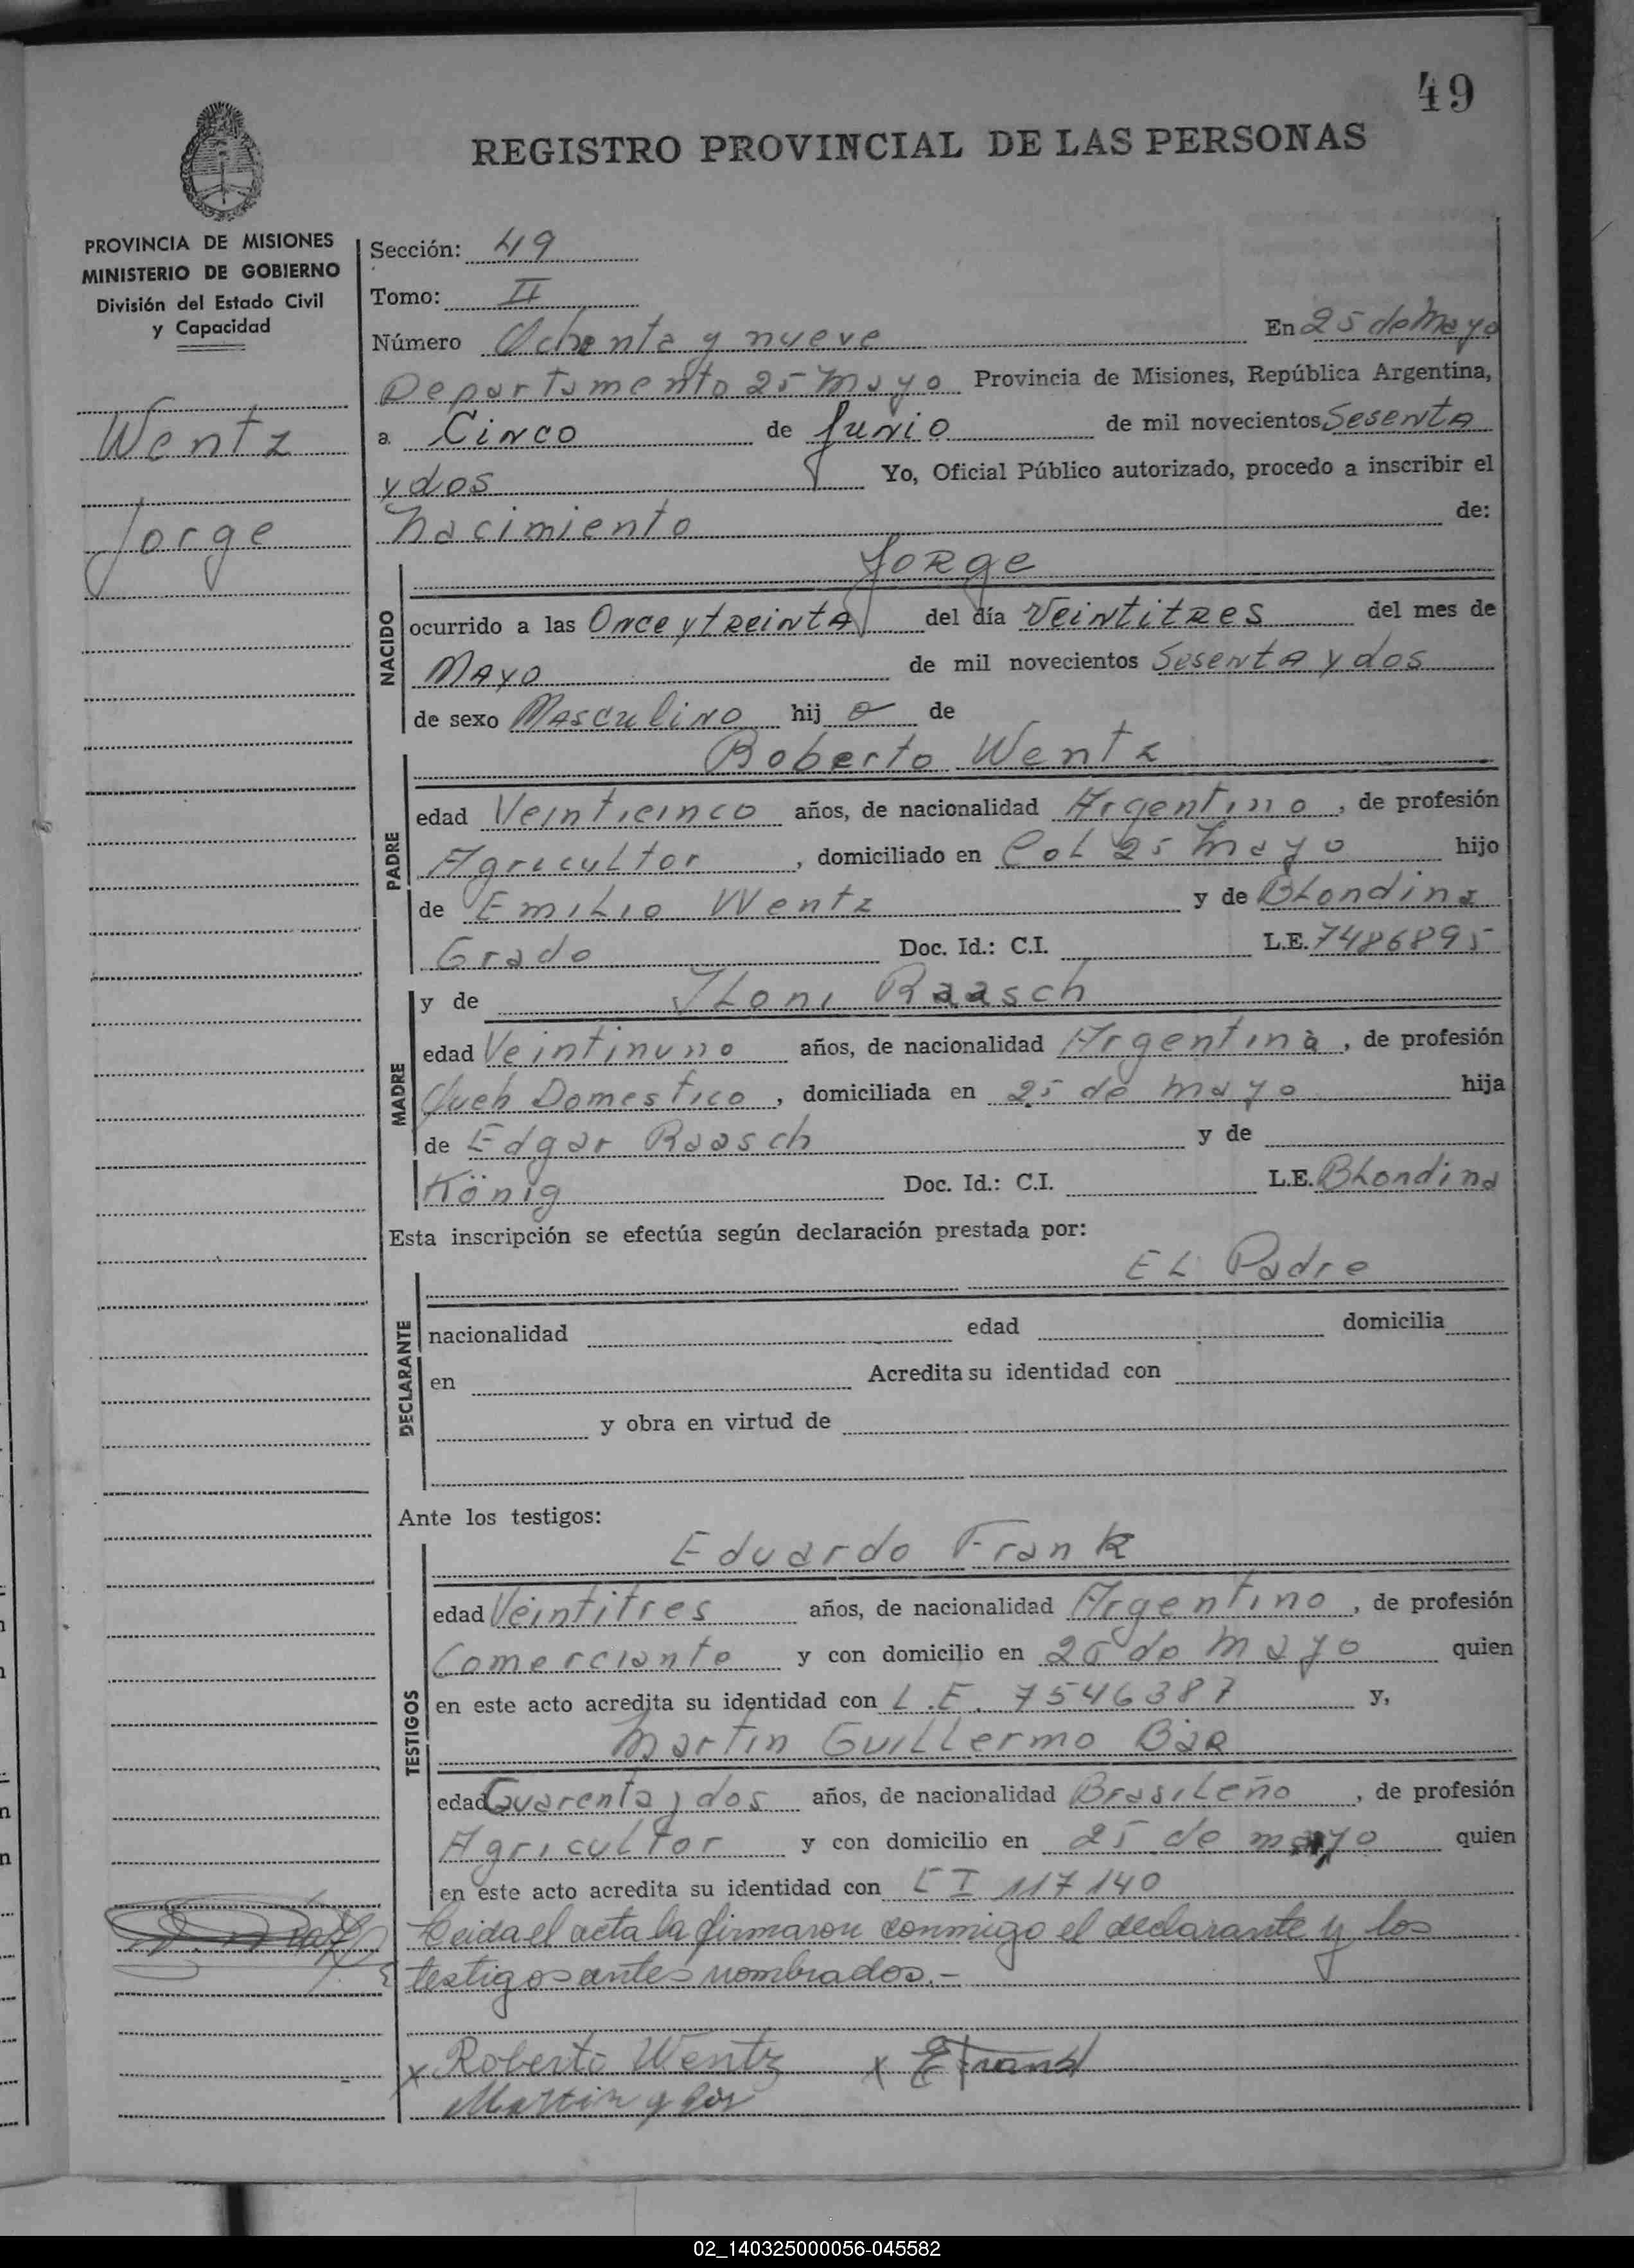 49
REGISTRO PROVINCIAL DE LAS PERSONAS
PROVINCIA DE MISIONES
MINISTERIO DE GOBIERNO
División del Estado Civil
y Capacidad
Wentz
Jorge
Sección: 49
Tomo: II
Número Ochenta y nueve En 25 de Mayo
Departamento 25 Mayo Provincia de Misiones, República Argentina,
a Cinco de Junio de mil novecientos Sesenta
y dos Yo, Oficial Público autorizado, procedo a inscribir el
nacimiento de:
Jorge
NACIDO
ocurrido a las Once y treinta del día Veintitres del mes de
Mayo de mil novecientos Sesenta y dos
de sexo Masculino hij o de
Roberto Wentz
PADRE
edad Veinticinco años, de nacionalidad Argentino, de profesión
Agricultor, domiciliado en Col 25 Mayo hijo
de Emilio Wentz y de Blondina
Grado Doc. Id.: C.I. L.E. 7486895
MADRE
y de Iloni Raasch
edad Veintinuno años, de nacionalidad Argentina, de profesión
Queh Domestico, domiciliada en 25 de mayo hija
de Edgar Raasch y de
König Doc. Id.: C.I. L.E. Blondina
Esta inscripción se efectúa según declaración prestada por:
El Padre
DECLARANTE
nacionalidad edad domicilia
en Acredita su identidad con
y obra en virtud de
Ante los testigos:
Eduardo Frank
TESTIGOS
edad Veintitres años, de nacionalidad Argentino, de profesión
Comerciante y con domicilio en 25 de Mayo quien
en este acto acredita su identidad con L.E. 7546387 y,
Martin Guillermo Bär
edad Cuarenta y dos años, de nacionalidad Brasileño, de profesión
Agricultor y con domicilio en 25 de mayo quien
en este acto acredita su identidad con C I 117140
Leida el acta la firmaron conmigo el declarante y los
testigos antes nombrados.-
x Roberto Wentz x E Frank
Martin g Bär
02_140325000056-045582